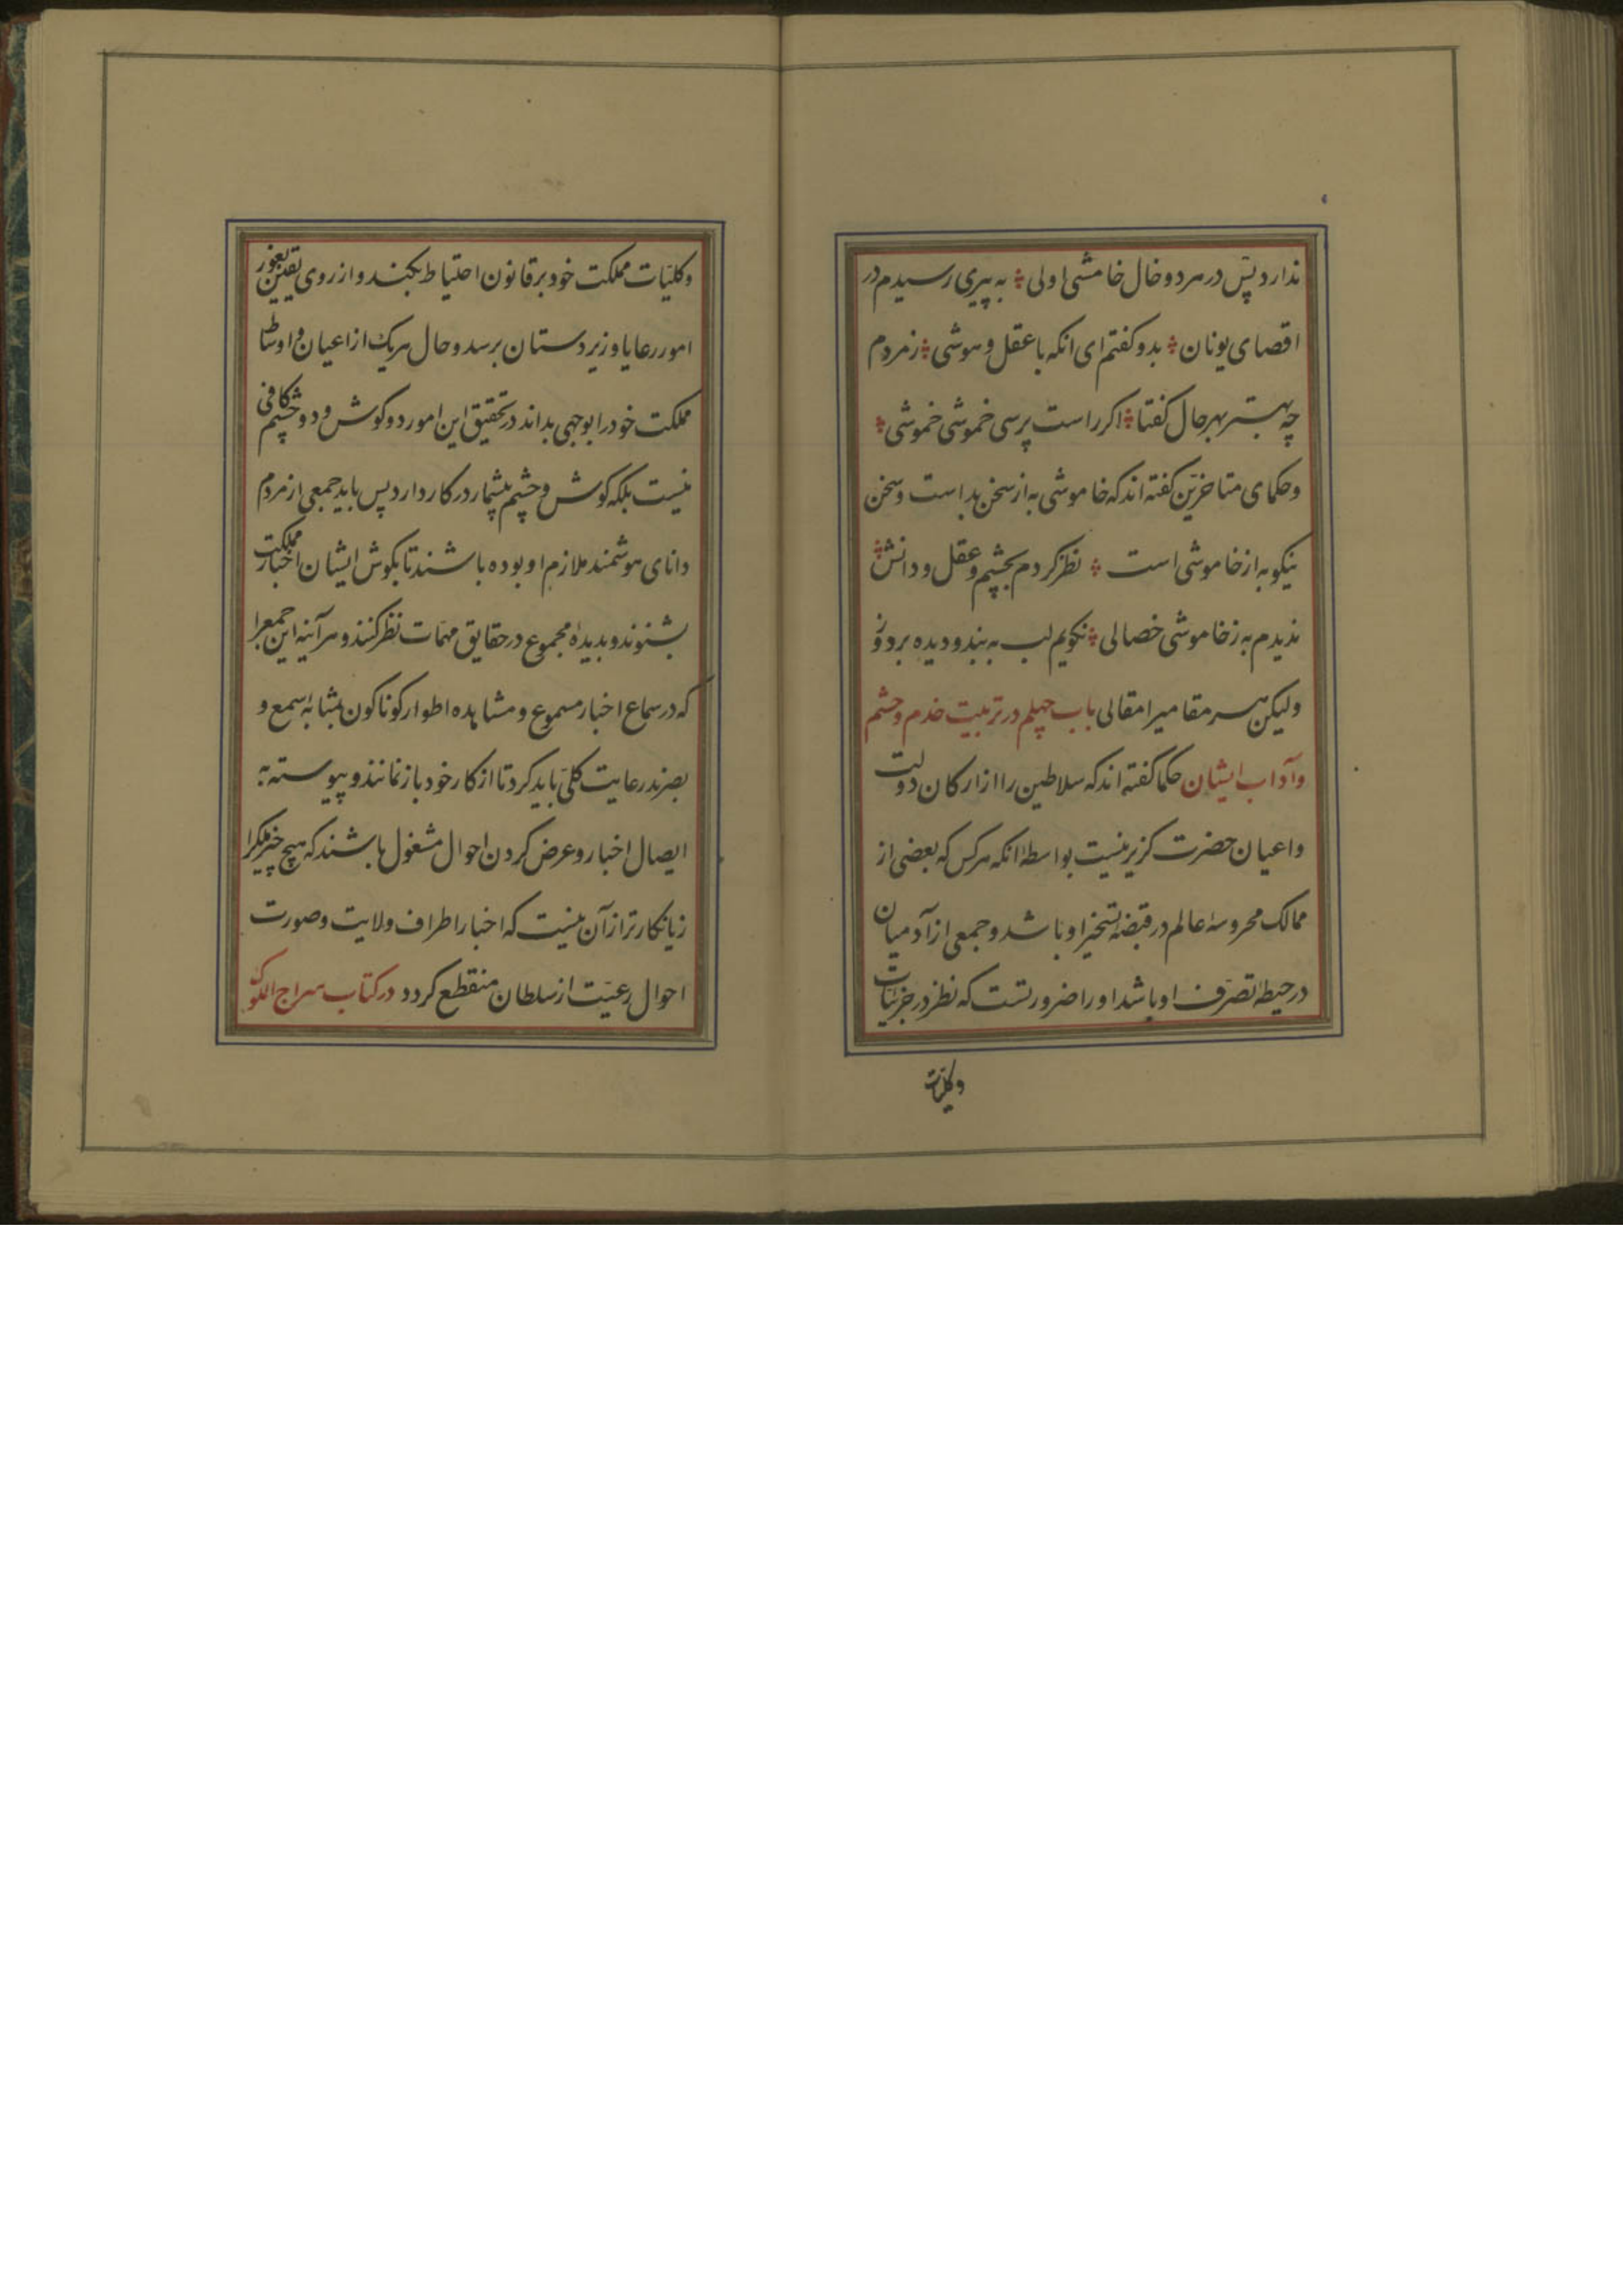 ندارد پس در هر دو خال خامشی اولی به پیری رسیدم در
اقصای یونان بدو کفتم ای انکه با عقل و هوشی ز مردم
چه بهتر بهر حال کفتا اکر راست پرسی خموشی خموشی
و حکمای متاخرین کفته اند که خاموشی به از سخن بد است و سخن
نیکو به از خاموشی است نظر کردم بچشم و عقل و دانش
ندیدم به ز خاموشی خصالی نکویم لب به بند و دیده بر دوز
ولیکن هر مقامیرا مقالی باب چهلم در تربیت خدم و حشم
و آداب ایشان حکما کفته اند که سلاطین را از ارکان دولت
و اعیان حضرت کزیر نیست بواسطه انکه هر کس که بعضی از
ممالک محروسه عالم در قبضه تسخیر او باشد و جمعی از آدمیان
در حیطه تصرف او باشد او را ضرورتست که نظر در جزئیات
وکلیات
وکلیات مملکت خود بر قانون احتیاط بکند و از روی یقین بغور
امور رعایا و زیردستان برسد و حال هر یک از اعیان و اوساط
مملکت خود را بوجهی بداند در تحقیق این امور دو کوش و دو چشم کافی
نیست بلکه کوش و چشم بیشمار در کار دارد پس باید جمعی از مردم
دانای هوشمند ملازم او بوده باشند تا بکوش ایشان اخبار مملکت
بشنوند و بدیده مجموع در حقایق مهمات نظر کنند و هر آینه این جمعرا
که در سماع اخبار مسموع و مشاهده اطوار کوناکون بمثابه سمع و
بصرند رعایت کلی باید کرد تا از کار خود باز نمانند و پیوسته به
ایصال اخبار و عرض کردن احوال مشغول باشند که هیچ چیز ملکرا
زیانکارتر از آن نیست که اخبار اطراف ولایت و صورت
احوال رعیت از سلطان منقطع کردد در کتاب سراج الملوک